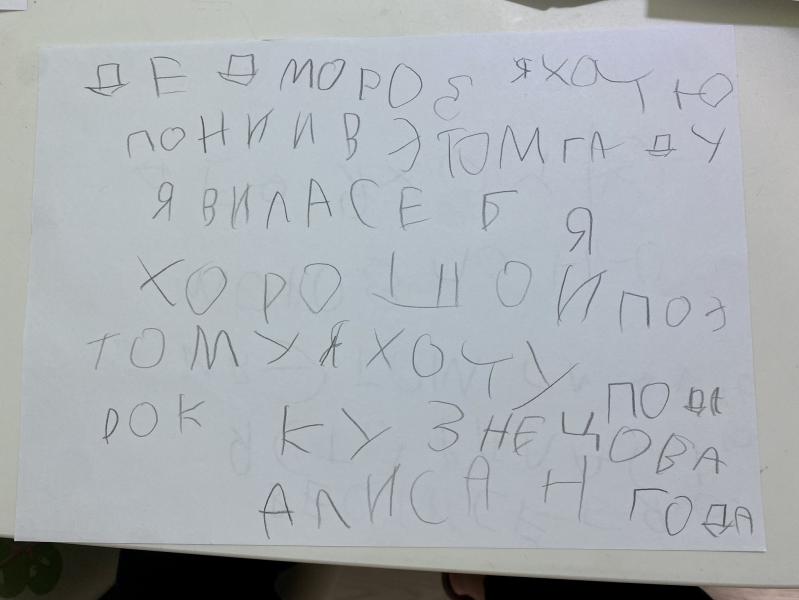 ДЕД МОРОЗ Я ХОЧЮ
ПОНИ И В ЭТОМ ГАДУ
Я ВИЛА СЕБЯ
ХОРОШОЙ ПОЭ
ТОМУ Я ХОЧУ ПОДА
РОК КУЗНЕЦОВА
АЛИСА 4 ГОДА